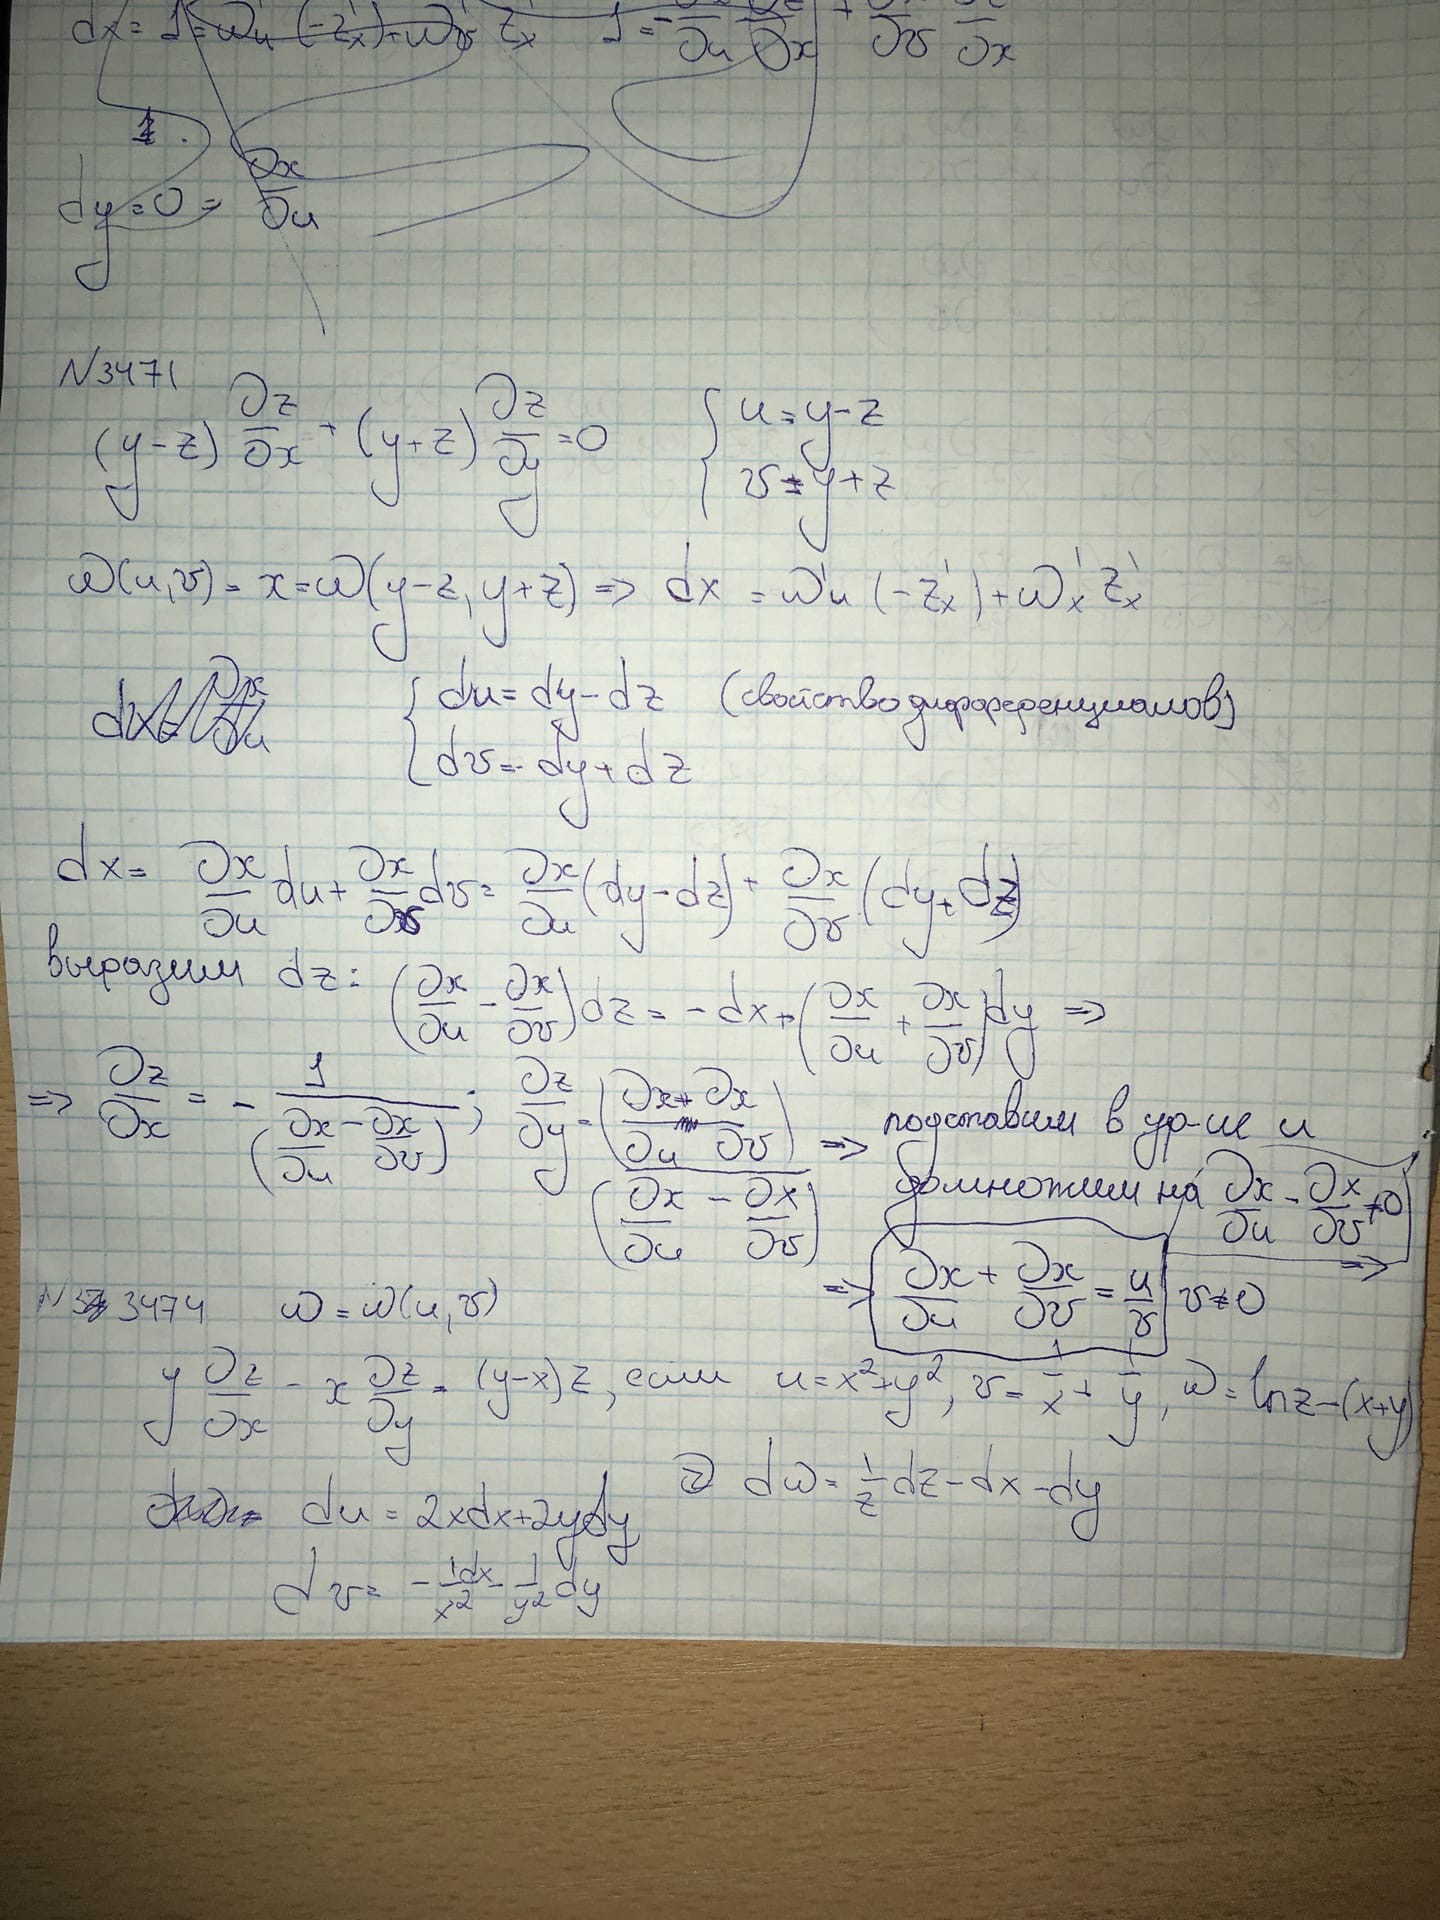 dx = 1 = w'u (-z'x) + w'v z'x   1 = -∂x/∂u ∂z/∂x + ∂x/∂v ∂z/∂x
dy = 0 = ∂x/∂u
N3471
(y-z) ∂z/∂x + (y+z) ∂z/∂y = 0   { u = y-z
v = y+z
w(u,v) = x = w(y-z, y+z) => dx = w'u (-z'x) + w'x z'x
{ du = dy - dz (свойство дифференциалов)
dv = dy + dz
dx = ∂x/∂u du + ∂x/∂v dv = ∂x/∂u (dy-dz) + ∂x/∂v (dy+dz)
выразим dz: (∂x/∂u - ∂x/∂v) dz = -dx + (∂x/∂u + ∂x/∂v) dy =>
=> ∂z/∂x = - 1/(∂x/∂u - ∂x/∂v) ; ∂z/∂y = (∂x/∂u + ∂x/∂v)/(∂x/∂u - ∂x/∂v) => подставим в ур-ие и
домножим на ∂x/∂u - ∂x/∂v ≠ 0 =>
=> ∂x/∂u + ∂x/∂v = u/v   v ≠ 0
N 3474   w = w(u,v)
y ∂z/∂x - x ∂z/∂y = (y-x)z, если u = x²+y², v = 1/x + 1/y, w = ln z - (x+y)
du = 2xdx + 2ydy   dw = 1/z dz - dx - dy
dv = -1/x² dx - 1/y² dy